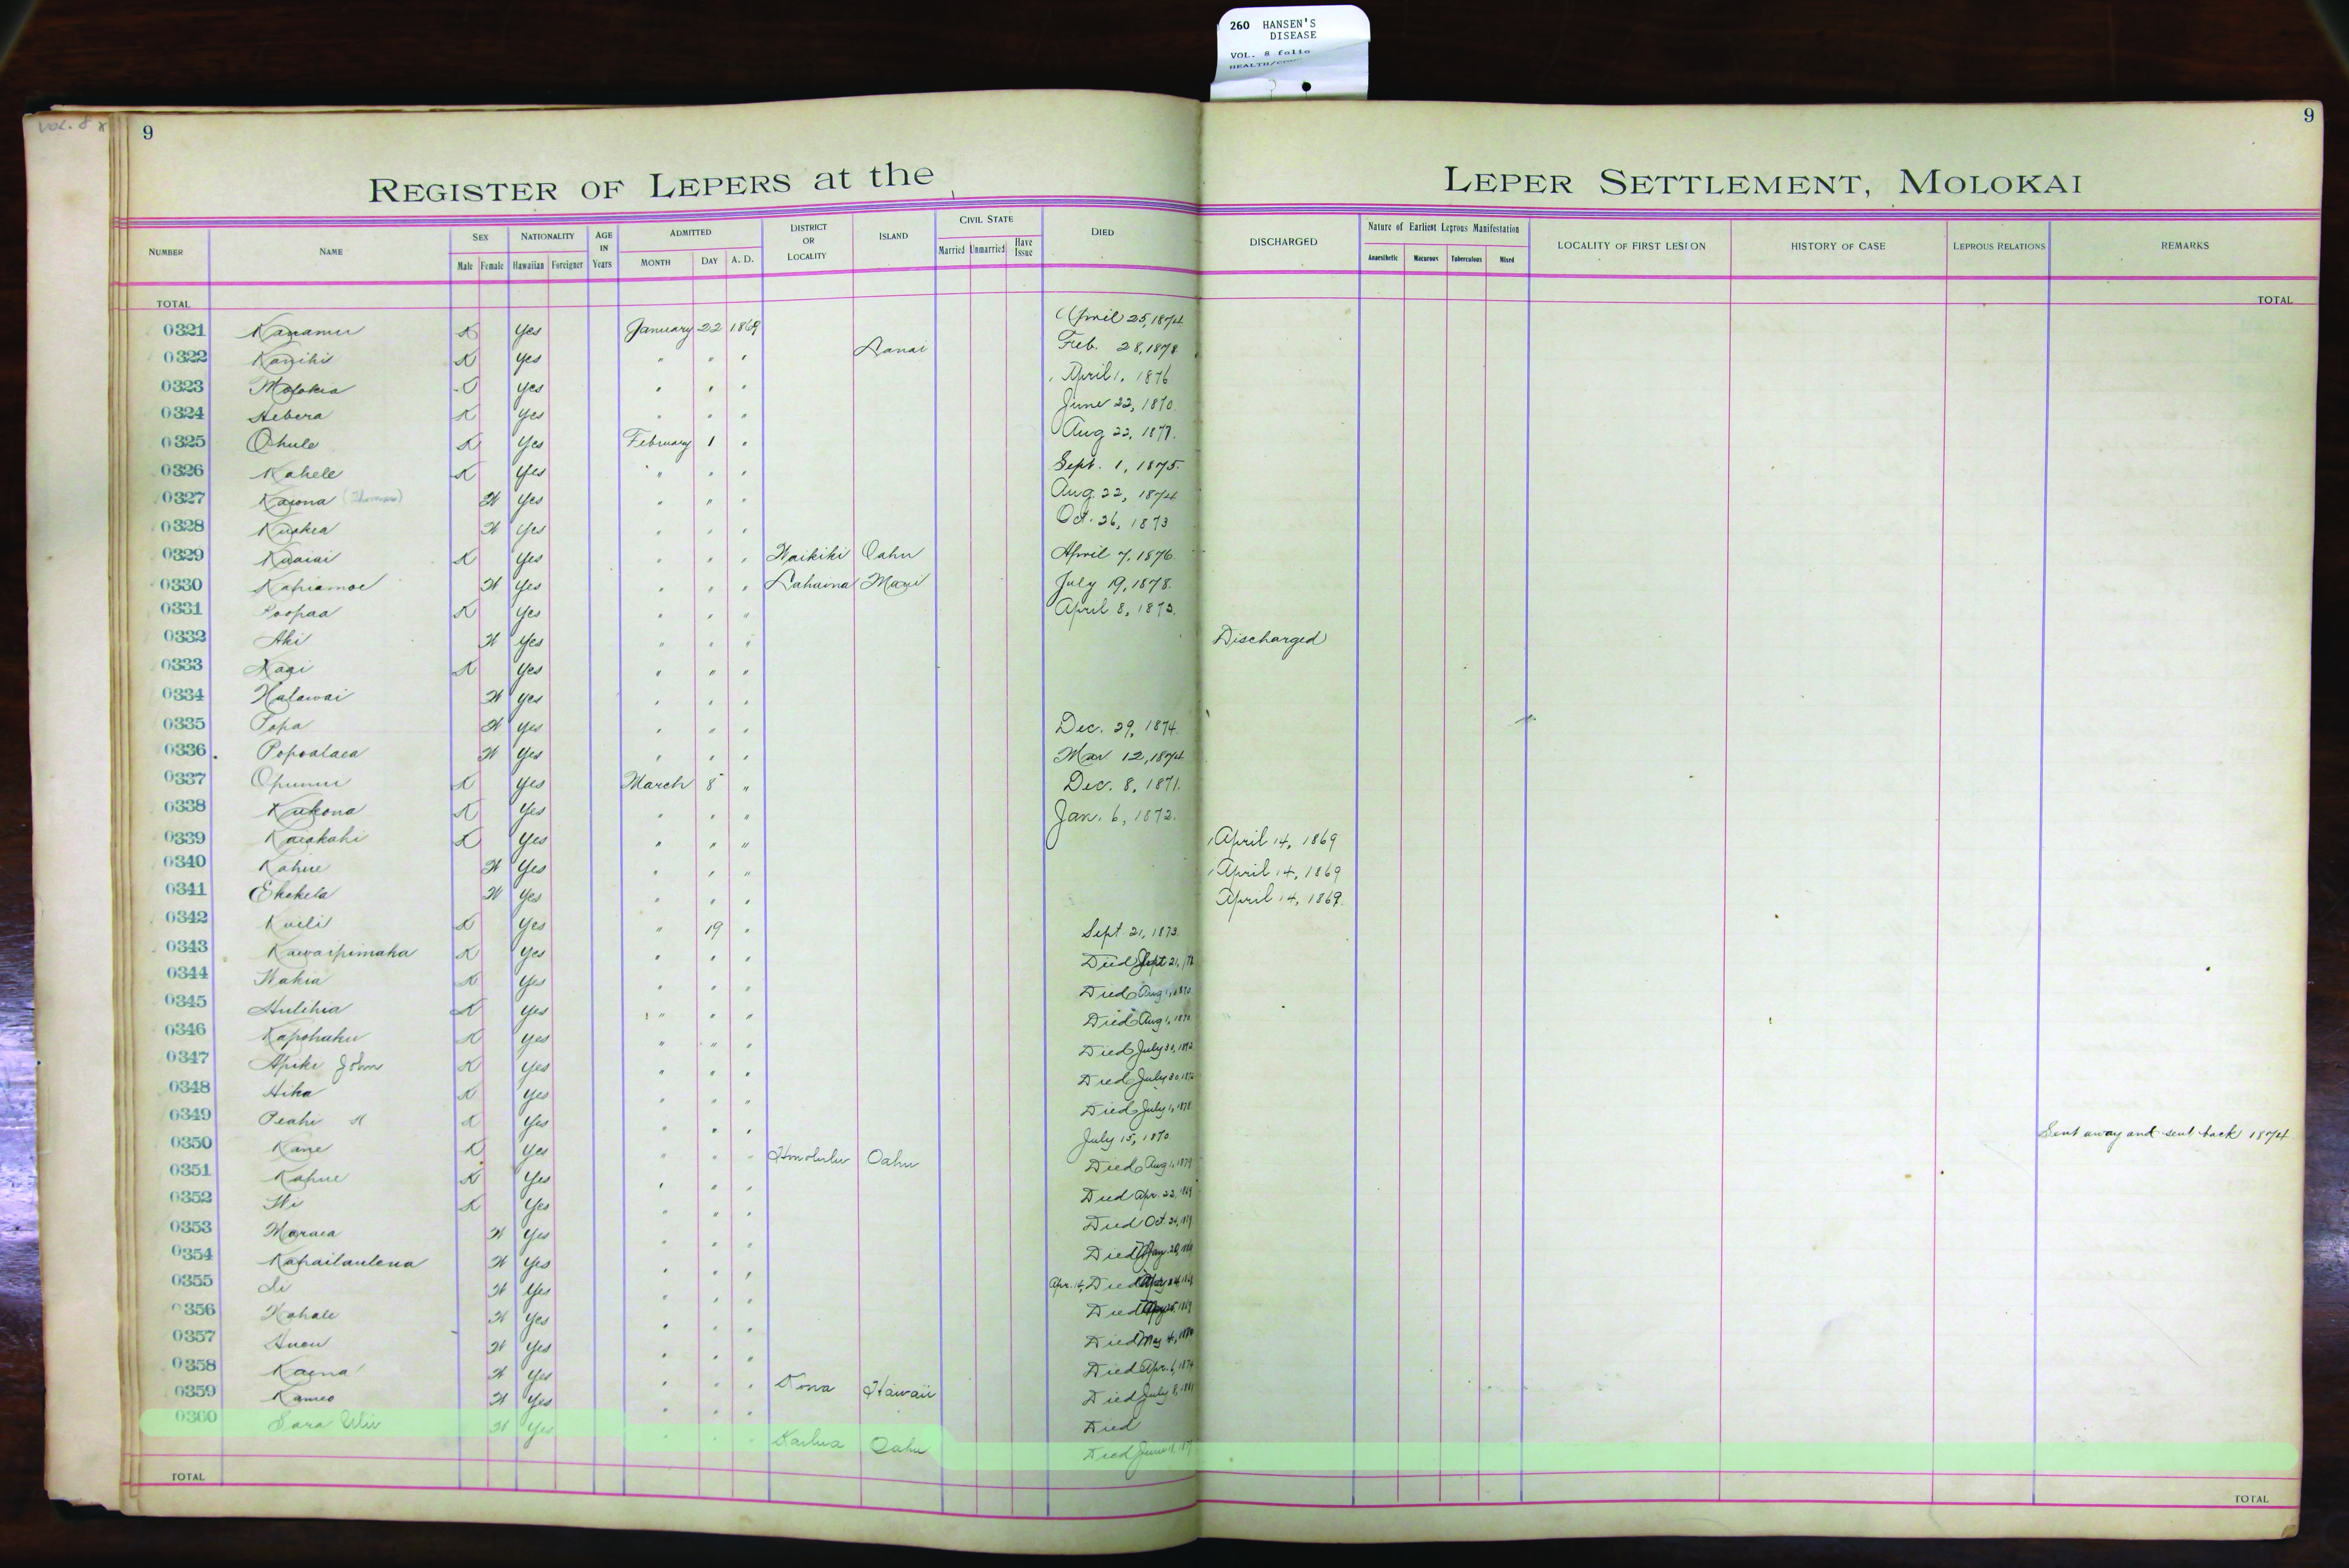 260 HANSEN'S
DISEASE
VOL. 8 folio
VOL. 8
9
9
REGISTER OF LEPERS at the LEPER SETTLEMENT, MOLOKAI
NUMBER NAME SEX NATIONALITY AGE IN Years ADMITTED DISTRICT OR LOCALITY ISLAND CIVIL STATE DIED DISCHARGED Nature of Earliest Leprous Manifestation LOCALITY OF FIRST LESION HISTORY OF CASE LEPROUS RELATIONS REMARKS
Male Female Hawaiian Foreigner MONTH DAY A. D. Married Unmarried Have Issue Anaesthetic Macurous Tuberculous Mixed
TOTAL TOTAL
0321 Kanamu K Yes January 22 1869 April 25, 1874
0322 Kanihi K Yes " " " Lanai Feb. 28, 1878
0323 Molokia Yes " " " April 1, 1876
0324 Hebera K Yes " " " June 22, 1870
0325 Ohule K Yes February 1 " Aug 22, 1877.
0326 Kahele K Yes " " " Sept. 1, 1875.
0327 Kaiona (Thomas) W Yes " " " Aug. 22, 1874
0328 W Yes " " " Oct. 26, 1873
0329 K Yes " " " Waikiki Oahu April 7, 1876.
0330 Kapiamoe W Yes " " " Lahaina Maui July 19, 1878.
0331 Poopaa K Yes " " " April 8, 1873.
0332 Aki W Yes " " " Discharged
0333 K Yes " " "
0334 Halawai W Yes " " "
0335 Popa W Yes " " " Dec. 29, 1874.
0336 Popoalaea W Yes " " " Mar 12, 1874
0337 Opunui K Yes March 8 " Dec. 8, 1871.
0338 Kukona K Yes " " " Jan. 6, 1872.
0339 Kaiakahi K Yes " " " April 14, 1869
0340 Kahue W Yes " " " April 14, 1869
0341 Ekekela W Yes " " " April 14, 1869.
0342 Kuili K Yes " 19 " Sept. 21, 1873.
0343 Kawaipimaka K Yes " " " Died Sept 21,
0344 Wakia K Yes " " " Died Aug 1, 1870
0345 Hulihia K Yes " " " Died Aug 1, 1870
0346 Kapohaku K Yes " " " Died July 30, 1872
0347 Apiki John K Yes " " " Died July 30, 1872
0348 Hika K Yes " " " Died July 1, 1878
0349 Peahi K Yes " " " July 15, 1870. Sent away and sent back 1874
0350 Kane K Yes " " " Honolulu Oahu Died Aug 1, 1879
0351 Kahue K Yes " " " Died Apr. 22, 1869
0352 K Yes " " " Died Oct. 24,
0353 Maraea W Yes " " " Died May 20, 1869
0354 Kahailaulena W Yes " " " Apr. 14, Died
0355 W Yes " " " Died 1869
0356 Kahale W Yes " " " Died May 4, 1880
0357 W Yes " " " Died Apr. 6, 1874
0358 Kaena W Yes " " " Kona Hawaii Died July 8, 1881
0359 Kameo W Yes " " " Died
0360 Sara W Yes " " " Kailua Oahu Died June
TOTAL TOTAL